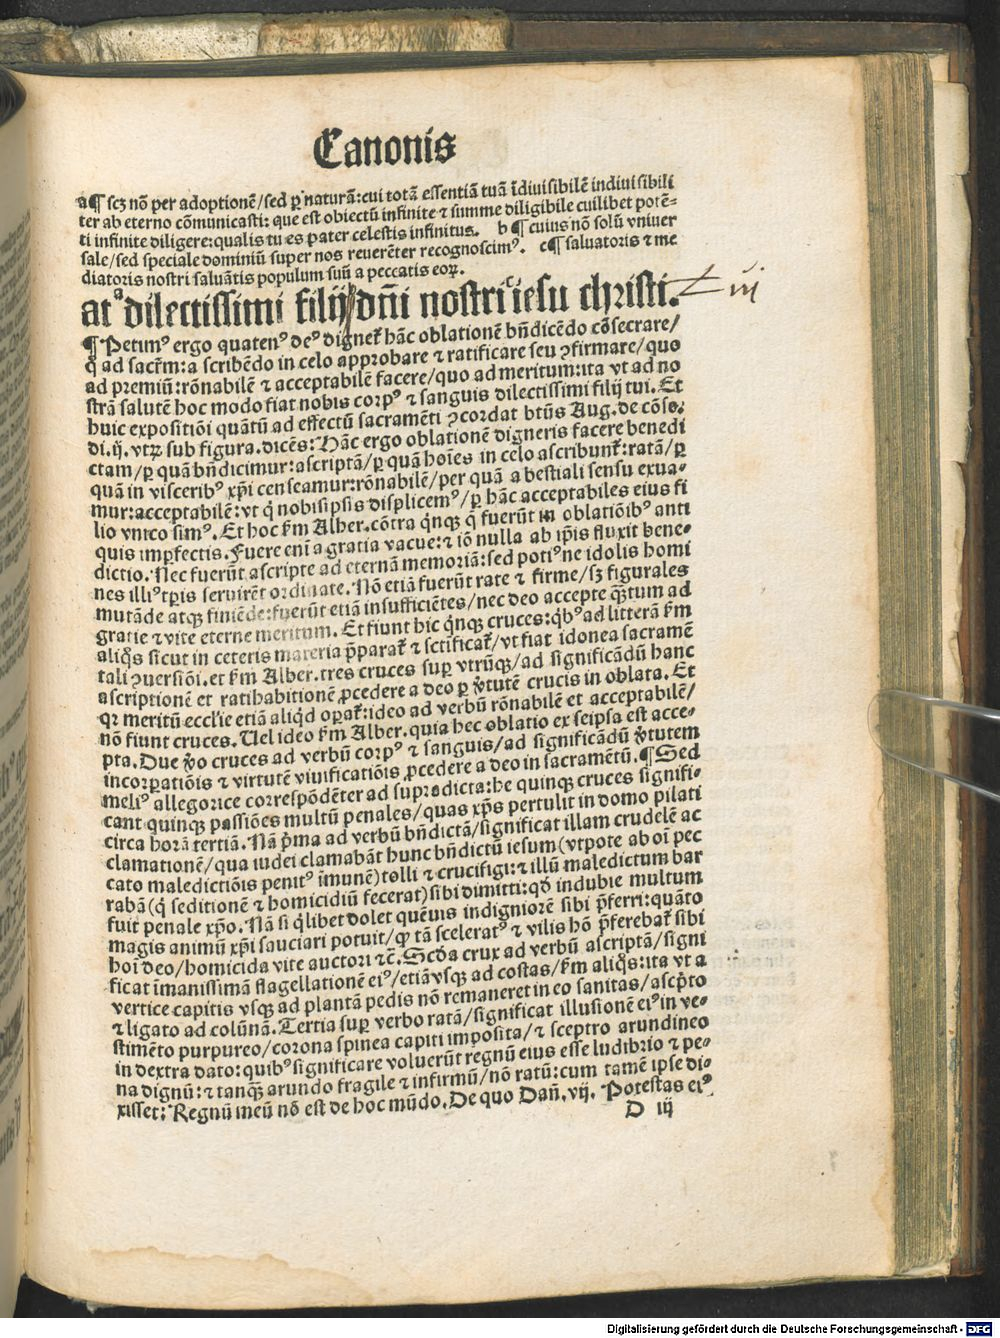 Canonis
a¶ scꝫ nō per adoptionē/sed ꝑ naturā:cui totā essentiā tuā īdiuisibilē indiuisibili
ter ab eterno cōmunicasti: que est obiectū infinite ⁊ summe diligibile cuilibet potē⸗
ti infinite diligere:qualis tu es pater celestis infinitus. b¶ cuius nō solū vniuer
sale/sed speciale dominiū super nos reuerēter recognoscimꝰ. c¶ saluatoris ⁊ me
diatoris nostri saluātis populum suū a peccatis eoꝝ.
atᵃ dilectissimi filij dn̄i nostriᶜ iesu christi.
¶ Petimꝰ ergo quatenꝰ deꝰ dignet᷑ hāc oblationē bn̄dicēdo cōsecrare/
q̄ ad sacr̄m:ascribēdo in celo approbare ⁊ ratificare seu ꝯfirmare/quo
ad premiū:rōnabilē ⁊ acceptabilē facere/quo ad meritum:ita vt ad no
strā salutē hoc modo fiat nobis corpꝰ ⁊ sanguis dilectissimi filij tui. Et
huic expositiōi quātū ad effectū sacramēti ꝯcordat btūs Aug. de cōse.
di.ij. vtrꝝ sub figura. dicēs: Hāc ergo oblationē digneris facere benedi
ctam/ꝑ quā bn̄dicimur:ascriptā/ꝑ quā hoīes in celo ascribunt᷑:ratā/ꝑ
quā in visceribꝰ xp̄i censeamur:rōnabilē/per quā a bestiali sensu exua⸗
mur:acceptabilē:vt q̄ nobisipsis displicemꝰ/ꝑ hāc acceptabiles eius fi
lio vnico simꝰ. Et hoc ẜm Alber. cōtra q̇nqꝫ q̄ fuerūt in oblatiōibꝰ anti
quis imꝑfectis. Fuere enī a gratia vacue:⁊ iō nulla ab ip̄is fluxit bene⸗
dictio. Nec fuerūt ascripte ad eternā memoriā:sed potiꝰ ne idolis homi
nes illiꝰ tꝑis seruirēt ordinate. Nō etiā fuerūt rate ⁊ firme/sꝫ figurales
mutāde atqꝫ finiēde:fuerūt etiā insufficiētes/nec deo accepte q̄ꝫtum ad
gratie ⁊ vite eterne meritum. Et fiunt hic q̇nqꝫ cruces:q̇bꝰ ad litterā ẜm
aliq̇s sicut in ceteris materia p̄parat᷑ ⁊ sc̄tificat᷑/vt fiat idonea sacramē
tali ꝯuersiōi. et ẜm Alber. tres cruces suꝑ vtrūqꝫ/ad significādū hanc
ascriptionē et ratihabitionē ꝓcedere a deo ꝑ v̓tutē crucis in oblata. Et
qꝛ meritū eccl'ie etiā aliq̇d oꝑat᷑:ideo ad verbū rōnabilē et acceptabilē/
nō fiunt cruces. Uel ideo ẜm Alber. quia hec oblatio ex seipsa est acce⸗
pta. Due v̓o cruces ad verbū corpꝰ ⁊ sanguis/ad significādū v̓tutem
incorꝑatiōis ⁊ virtutē viuificatiōis ꝓcedere a deo in sacramētū. ¶ Sed
meliꝰ allegorice correspōdēter ad supradicta:he quinqꝫ cruces signifi⸗
cant quinqꝫ passiōes multū penales/quas xp̄s pertulit in domo pilati
circa horā tertiā. Nā p̄ma ad verbū bn̄dictā/significat illam crudelē ac
clamationē/qua iudei clamabāt hunc bn̄dictū iesum (vtpote ab oī pec
cato maledictiōis penitꝰ īmunē) tolli ⁊ crucifigi:⁊ illū maledictum bar
rabā (q̄ seditionē ⁊ homicidiū fecerat) sibi dimitti:qd̄ indubie multum
fuit penale xp̄o. Nā si q̇libet dolet quēuis indigniorē sibi p̄ferri:quāto
magis animū xp̄i sauciari potuit/ꝙ tā sceleratꝰ ⁊ vilis hō p̄ferebat᷑ sibi
hoī deo/homicida vite auctori ⁊c̄. Scd̄a crux ad verbū ascriptā/signi
ficat īmanissimā flagellationē eiꝰ/etiā vsqꝫ ad costas/ẜm aliq̇s:ita vt a
vertice capitis vsqꝫ ad plantā pedis nō remaneret in eo sanitas/ascp̄to
⁊ ligato ad colūnā. Tertia suꝑ verbo ratā/significat illusionē eiꝰ in ve⸗
stimēto purpureo/corona spinea capiti imposita/⁊ sceptro arundineo
in dextra dato:quibꝰ significare voluerūt regnū eius esse ludibrio ⁊ pe⸗
na dignū:⁊ tanqꝫ arundo fragile ⁊ infirmū/nō ratū:cum tamē ipse di⸗
xisset: Regnū meū nō est de hoc mūdo. De quo Dan̄. vij. Potestas eiꝰ
D iij
Digitalisierung gefördert durch die Deutsche Forschungsgemeinschaft - DFG